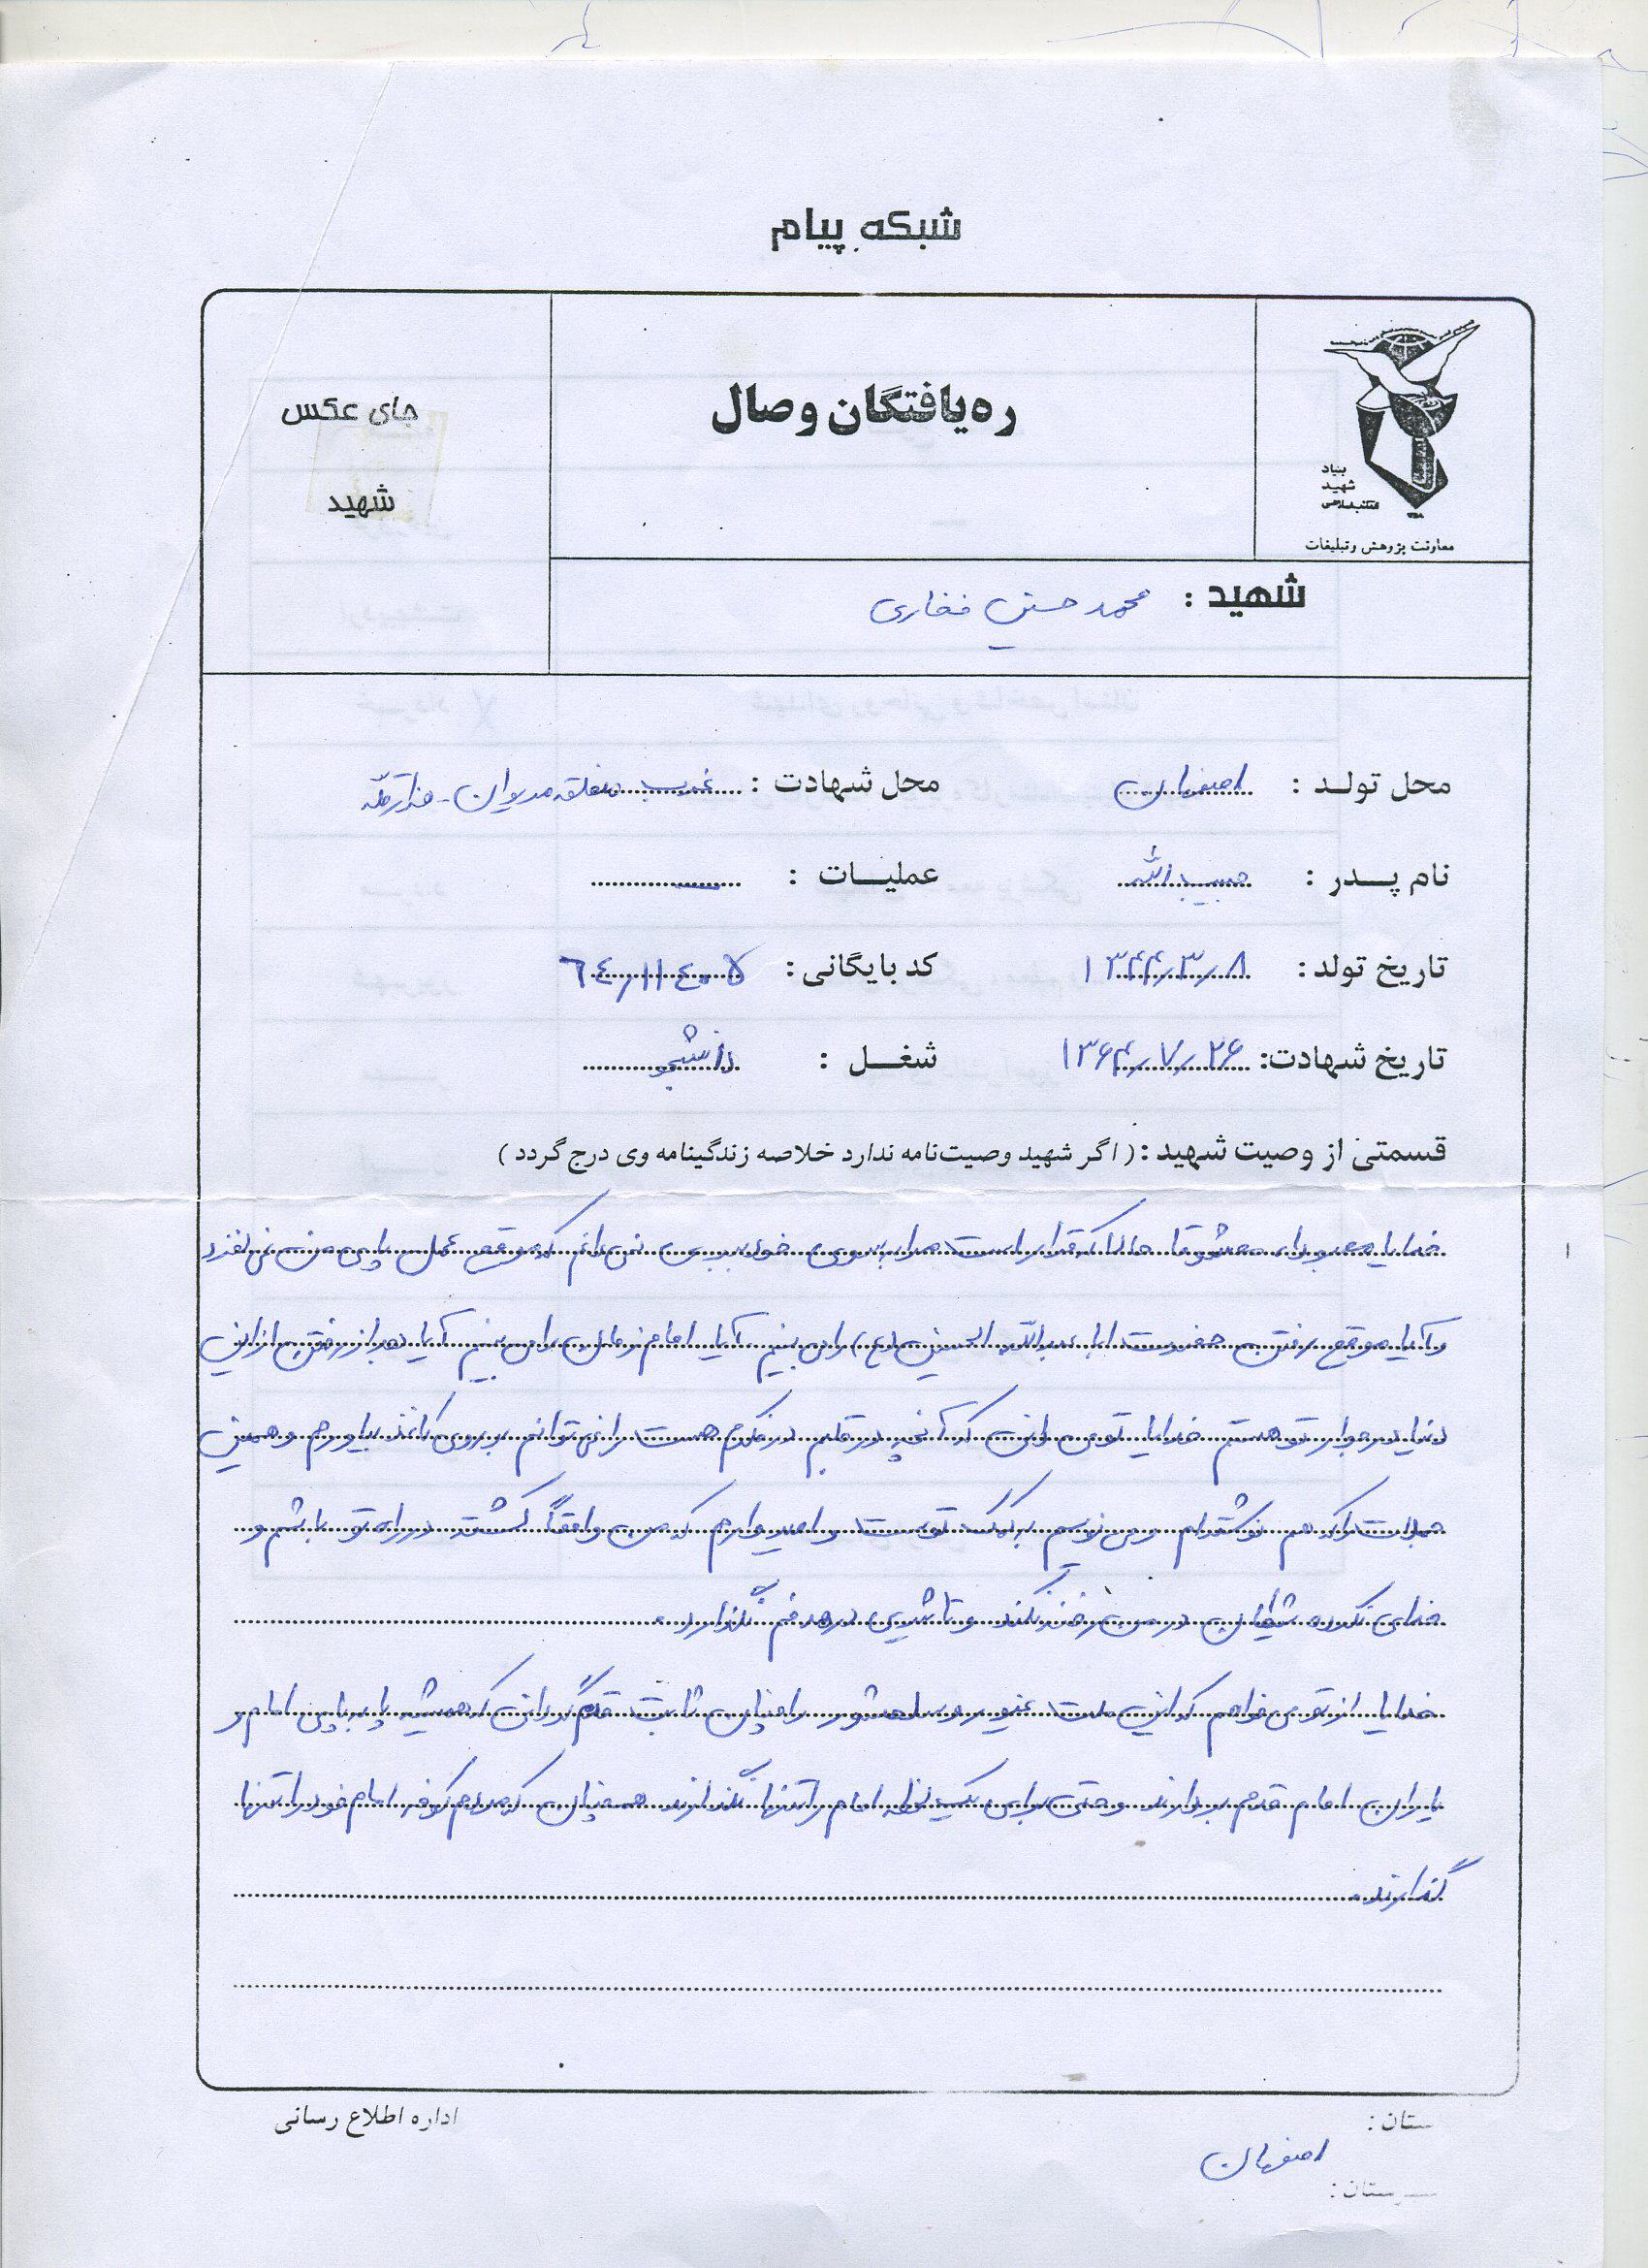 شبکه پیام
ره‌یافتگان وصال
جای عکس
شهید
بنیاد
شهید
انقلاب اسلامی
معاونت پژوهش و تبلیغات
شهید : محمد حسین غفاری
محل تولد : اصفهان
محل شهادت : غرب منطقه مریوان -
نام پدر : حبیب الله
عملیات : ــ
تاریخ تولد : ۱۳۴۴/۳/۸
کد بایگانی : ۶۴۱۱۴۰۵
تاریخ شهادت : ۱۳۶۴/۷/۲۶
شغل : دانشجو
قسمتی از وصیت شهید : ( اگر شهید وصیت‌نامه ندارد خلاصه زندگینامه وی درج گردد )
خدایا معبودا، معشوقا حالا که قرار است مرا بسوی خود ببری نمی دانم که موقع عمل پای من می لغزد
و آیا موقع رفتن حضرت ابا عبدالله الحسین (ع) را می بینم آیا امام زمان را می بینم آیا بعد از رفتن از این
دنیا در جوار تو هستم خدایا تو می دانی که آنچه در قلبم در فکرم هست را نمی توانم بر روی کاغذ بیاورم و همین
جملات را که هم نوشته‌ام و می نویسم به کمک توست و امیدوارم که من واقعاً کشته در راه تو باشم و
خدای نکرده شیطان در من رخنه نکند و تاثیری در هدفم نگذارد.
خدایا از تو می خواهم که این ملت غیور و سلحشور را چنان ثابت قدم گردانی که همیشه پا به پای امام و
یاران امام قدم بردارند و حتی برای یک لحظه امام را تنها نگذارند همچنان که مردم کوفه امام خود را تنها
گذارند.
اداره اطلاع رسانی
ستان :
اصفهان
رستان :